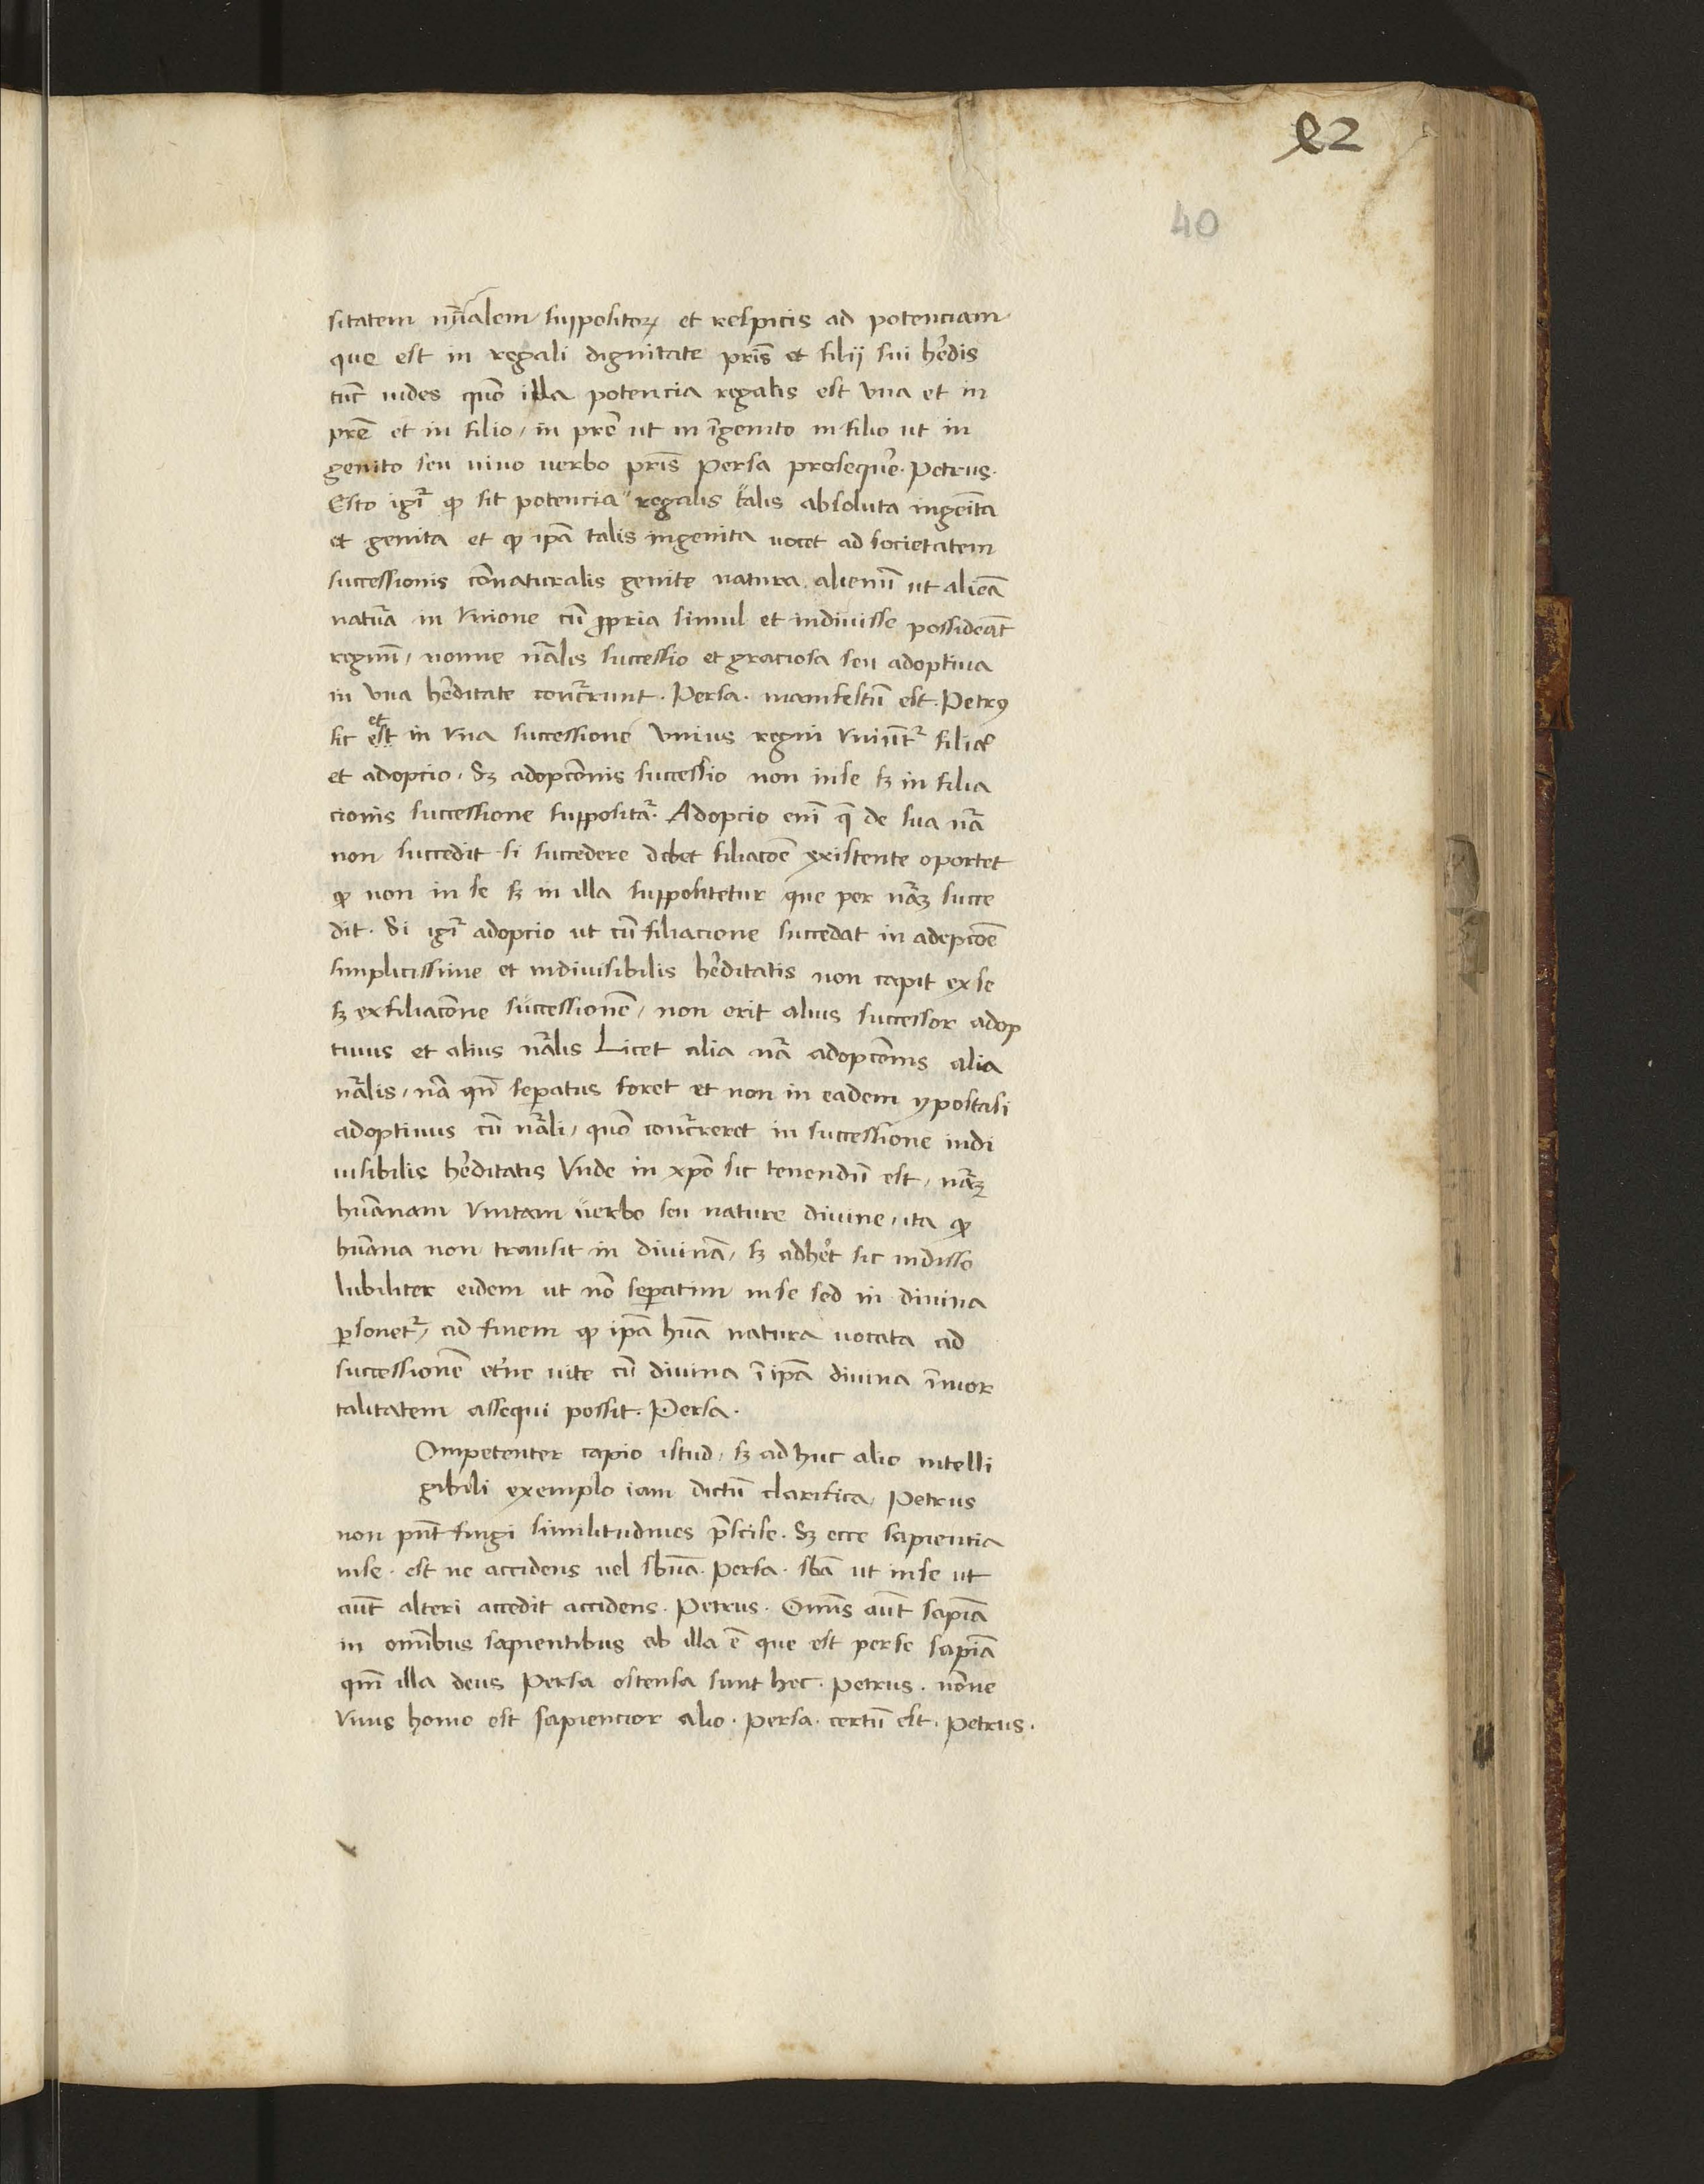 82
40
sitatem nūalem suppositoꝝ et respicis ad potenciam
que est in regali dignitate pr̄is et filij sui he᷑dis
tūc uides quō illa potencia regalis est vna et in
pr̄e et in filio, in pr̄e ut in īgenito in filio ut in
genito seu uiuo uerbo pr̄is Persa proseque᷑. Petrus.
Esto igr̄ ꝙ sit potencia regalis talis absoluta ingēita
et genita et ꝙ ip̄a talis ingenita uocet ad societatem
successionis cōnaturalis genite natura alienū ut aliēa
natur̄a in vnione cū ꝓpria simul et indiuisse possideāt
regnū, nonne nr̄alis successio et graciosa seu adoptiua
in vna he᷑ditate concr̄runt. Persa. manifestū est. Petrꝯ
sic et est in vna successione vnius regni vniūtr̄ filiac̄o
et adoptio. Sꝫ adopcōnis successio non inse sꝫ in filia
cionis successione suppositar̄. Adopcio enī q̄ de sua nr̄a
non succedit si succedere debet filiacōe existente oportet
ꝙ non in se sꝫ in illa suppositetur que per nr̄aꝫ succe
dit. Si igr̄ adopcio ut cū filiacione succedat in adepcōe
simplicissime et indiuisibilis he᷑ditatis non capit ex se
sꝫ ex filiacōne successionē, non erit alius successor adop
tiuus et alius nr̄alis Licet alia nr̄a adopcōnis alia
nr̄alis, nā qn̄ sepatus foret et non in eadem ypostasi
adoptiuus cū nr̄ali, quō concr̄reret in successione indi
uisibilis he᷑ditatis Vnde in xp̄o sic tenendū est, nr̄aꝫ
hūanam vnitam uerbo seu nature diuine, ita ꝙ
hūana non transit in diuinā, sꝫ adhe᷑t sic indisso
lubiliter eidem ut nō sepatim inse sed in diuina
ꝑsonetr̄, ad finem ꝙ ip̄a hūā natura uocata ad
successionē et᷑ne uite cū diuina ī ip̄a diuina īmor
talitatem assequi possit. Persa.
Ompetenter capio istud, sꝫ ad huc alio intelli
gibili exemplo iam dictū clarifica, Petrus
non pn̄t fingi similitudines p̄scise. Sꝫ ecce sapientia
inse. est ne accidens uel sbūā. Persa. sbā ut inse ut
aūt alteri accedit accidens. Petrus. Om̄is aūt sapīa
in om̄ibus sapientibus ab illa ē que est per se sapīa
qm̄ illa deus Persa ostensa sunt hec. Petrus. nōne
vnus homo est sapiencior alio. Persa. certū est. Petrus.